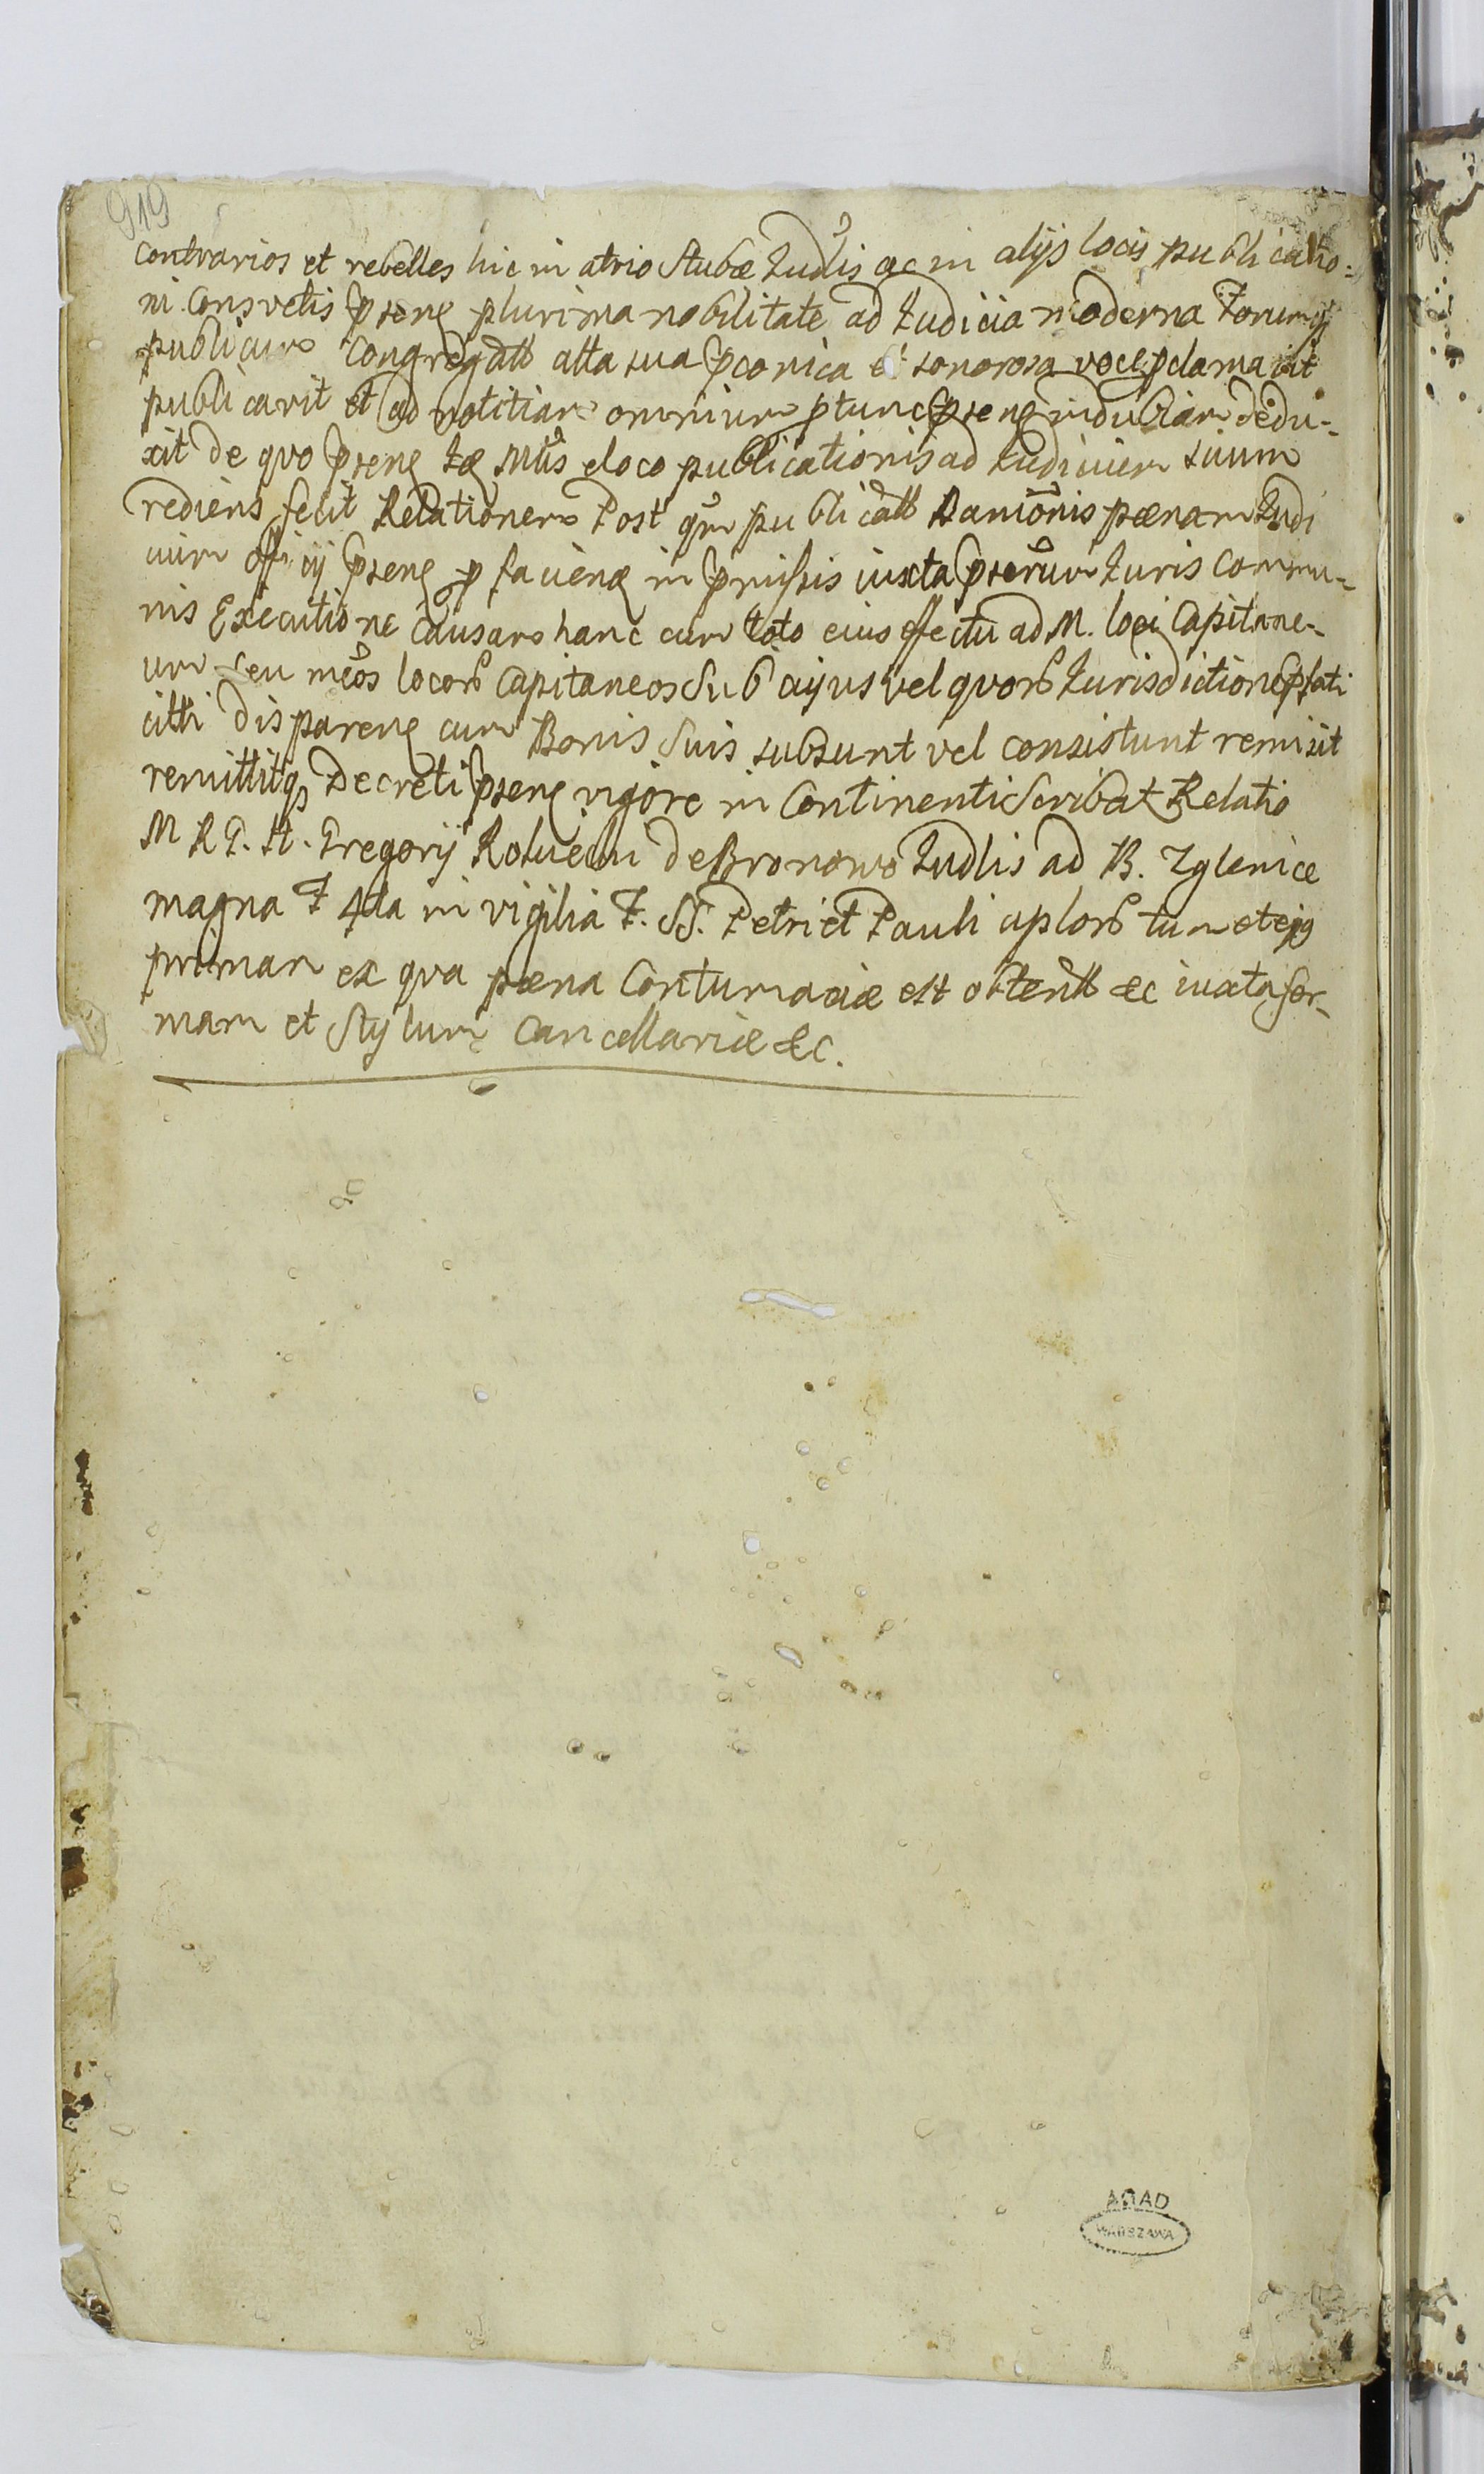 919
contrarios et rebelles hic in atrio Stubæ Iudlis ac in alijs locis publicatio=
ni Consvetis pseng plurima nobilitate ad Iudicia moderna
publicum Congregatt alta sua pconica et sonorosa voce pclamavit
publicavit et ad notitiam omnium ptunc pseng indubiam dedu-
xit de quo pseng Mtlis e loco publicationis ad Iudicium suum
rediens fecit Relationem Post qm publicatt Banionis pænam Iudi
cium officij pseng p facieng in pmissis iuxta pscrum Iuris Commu-
nis Executione Causam hanc cum toto eius effectu ad M. loci Capitane-
um seu mcos locorb Capitaneos Sub cujus vel quorb Iurisdictione pfati
citti dispareng cum Bonis Suis subsunt vel consistunt remisit
remittitqs Decreti pseng vigore in Continenti Scribat Relatio
M R G. H. Gregorij de Bronowo Iudlis ad B. Iglenice
magna F 4ta in vigilia F. SS. Petri et Pauli aplorb tum et ejg
primam ex qva pæna Contumaciæ est obtentt &c iuxta for-
mam et Stylum Cancellariæ &c.
AGAD
WARSZAWA